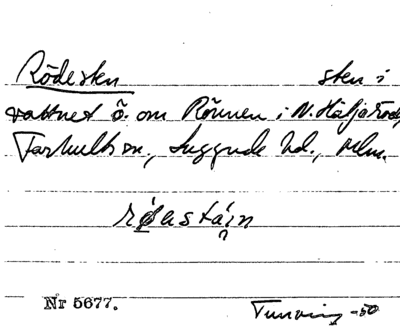 Rödesten sten i
vattnet ö. om Rönnen i N. Häljaröd,
Farhults sn, Luggude hd., Mlm.
röastäin
Nr 5677.
Tunving -50